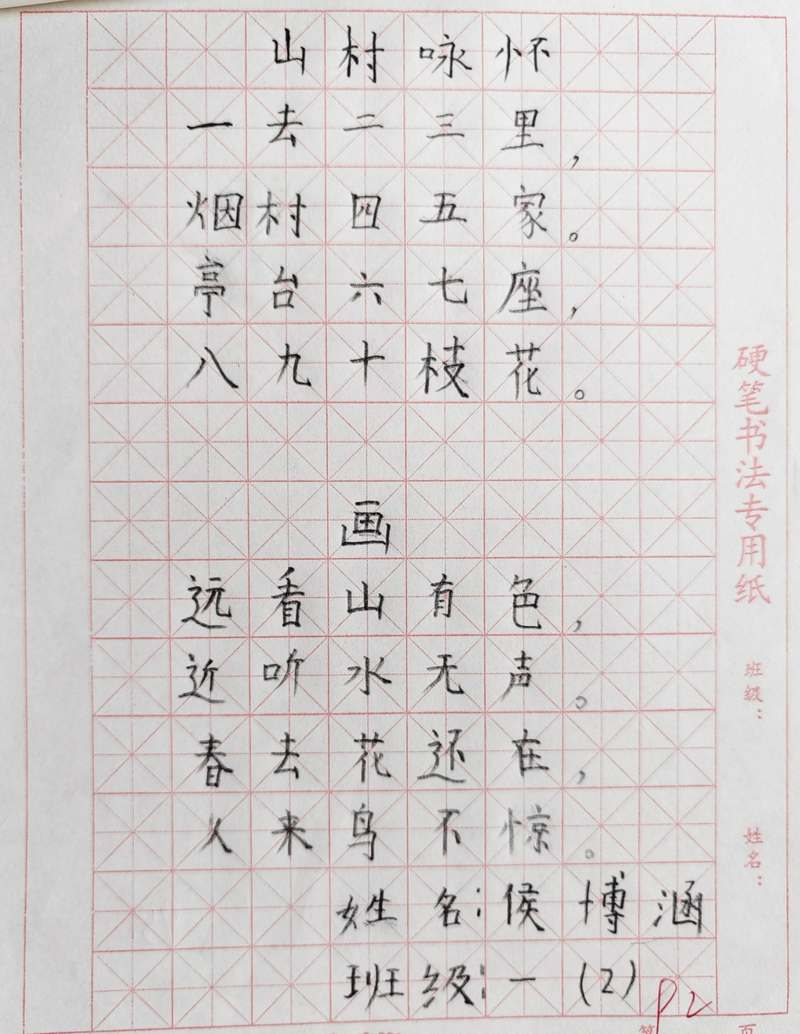 山村咏怀
一去二三里，
烟村四五家。
亭台六七座，
八九十枝花。
画
远看山有色，
近听水无声。
春去花还在，
人来鸟不惊。
姓名：侯博涵
班级：一（2）
P2
硬笔书法专用纸
班级：
姓名：
第 页